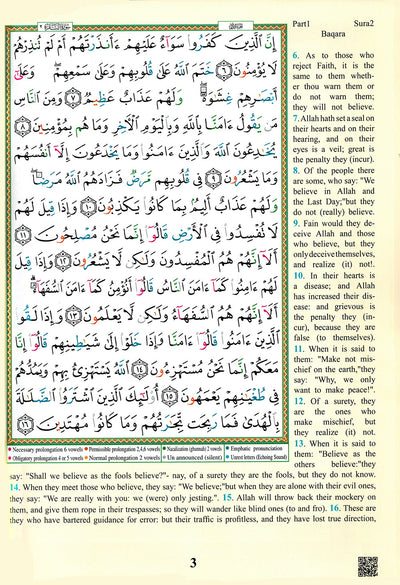 Part1 Sura2
Baqara
إِنَّ ٱلَّذِينَ كَفَرُوا۟ سَوَآءٌ عَلَيْهِمْ ءَأَنذَرْتَهُمْ أَمْ لَمْ تُنذِرْهُمْ
لَا يُؤْمِنُونَ ٦ خَتَمَ ٱللَّهُ عَلَىٰ قُلُوبِهِمْ وَعَلَىٰ سَمْعِهِمْ ۖ وَعَلَىٰٓ
أَبْصَـٰرِهِمْ غِشَـٰوَةٌ ۖ وَلَهُمْ عَذَابٌ عَظِيمٌ ٧ وَمِنَ ٱلنَّاسِ
مَن يَقُولُ ءَامَنَّا بِٱللَّهِ وَبِٱلْيَوْمِ ٱلْـَٔاخِرِ وَمَا هُم بِمُؤْمِنِينَ ٨
يُخَـٰدِعُونَ ٱللَّهَ وَٱلَّذِينَ ءَامَنُوا۟ وَمَا يَخْدَعُونَ إِلَّآ أَنفُسَهُمْ
وَمَا يَشْعُرُونَ ٩ فِى قُلُوبِهِم مَّرَضٌ فَزَادَهُمُ ٱللَّهُ مَرَضًا ۖ
وَلَهُمْ عَذَابٌ أَلِيمٌۢ بِمَا كَانُوا۟ يَكْذِبُونَ ١٠ وَإِذَا قِيلَ لَهُمْ
لَا تُفْسِدُوا۟ فِى ٱلْأَرْضِ قَالُوٓا۟ إِنَّمَا نَحْنُ مُصْلِحُونَ ١١
أَلَآ إِنَّهُمْ هُمُ ٱلْمُفْسِدُونَ وَلَـٰكِن لَّا يَشْعُرُونَ ١٢ وَإِذَا قِيلَ
لَهُمْ ءَامِنُوا۟ كَمَآ ءَامَنَ ٱلنَّاسُ قَالُوٓا۟ أَنُؤْمِنُ كَمَآ ءَامَنَ ٱلسُّفَهَآءُ ۗ
أَلَآ إِنَّهُمْ هُمُ ٱلسُّفَهَآءُ وَلَـٰكِن لَّا يَعْلَمُونَ ١٣ وَإِذَا لَقُوا۟
ٱلَّذِينَ ءَامَنُوا۟ قَالُوٓا۟ ءَامَنَّا وَإِذَا خَلَوْا۟ إِلَىٰ شَيَـٰطِينِهِمْ قَالُوٓا۟ إِنَّا
مَعَكُمْ إِنَّمَا نَحْنُ مُسْتَهْزِءُونَ ١٤ ٱللَّهُ يَسْتَهْزِئُ بِهِمْ وَيَمُدُّهُمْ
فِى طُغْيَـٰنِهِمْ يَعْمَهُونَ ١٥ أُو۟لَـٰٓئِكَ ٱلَّذِينَ ٱشْتَرَوُا۟ ٱلضَّلَـٰلَةَ
بِٱلْهُدَىٰ فَمَا رَبِحَت تِّجَـٰرَتُهُمْ وَمَا كَانُوا۟ مُهْتَدِينَ ١٦
Necessary prolongation 6 vowels Permissible prolongation 2,4,6 vowels Nazalization (ghunnah) 2 vowels Emphatic pronunciation
Obligatory prolongation 4 or 5 vowels Normal prolongation 2 vowels Un announced (silent) Unrest letters (Echoing Sound)
6. As to those who
reject Faith, it is the
same to them wheth-
er thou warn them or
do not warn them;
they will not believe.
7. Allah hath set a seal on
their hearts and on their
hearing, and on their
eyes is a veil; great is
the penalty they (incur).
8. Of the people there
are some, who say: "We
believe in Allah and
the Last Day;"but they
do not (really) believe.
9. Fain would they de-
ceive Allah and those
who believe, but they
only deceive themselves,
and realize (it) not!.
10. In their hearts is
a disease; and Allah
has increased their dis-
ease: and grievous is
the penalty they (in-
cur), because they are
false (to themselves).
11. When it is said to
them: "Make not mis-
chief on the earth,"they
say: "Why, we only
want to make peace!".
12. Of a surety, they
are the ones who
make mischief, but
they realize (it) not.
13. When it is said to
them: "Believe as the
others believe:"they
say: "Shall we believe as the fools believe?"- nay, of a surety they are the fools, but they do not know.
14. When they meet those who believe, they say: "We believe;"but when they are alone with their evil ones,
they say: "We are really with you: we (were) only jesting.". 15. Allah will throw back their mockery on
them, and give them rope in their trespasses; so they will wander like blind ones (to and fro). 16. These are
they who have bartered guidance for error: but their traffic is profitless, and they have lost true direction,
3